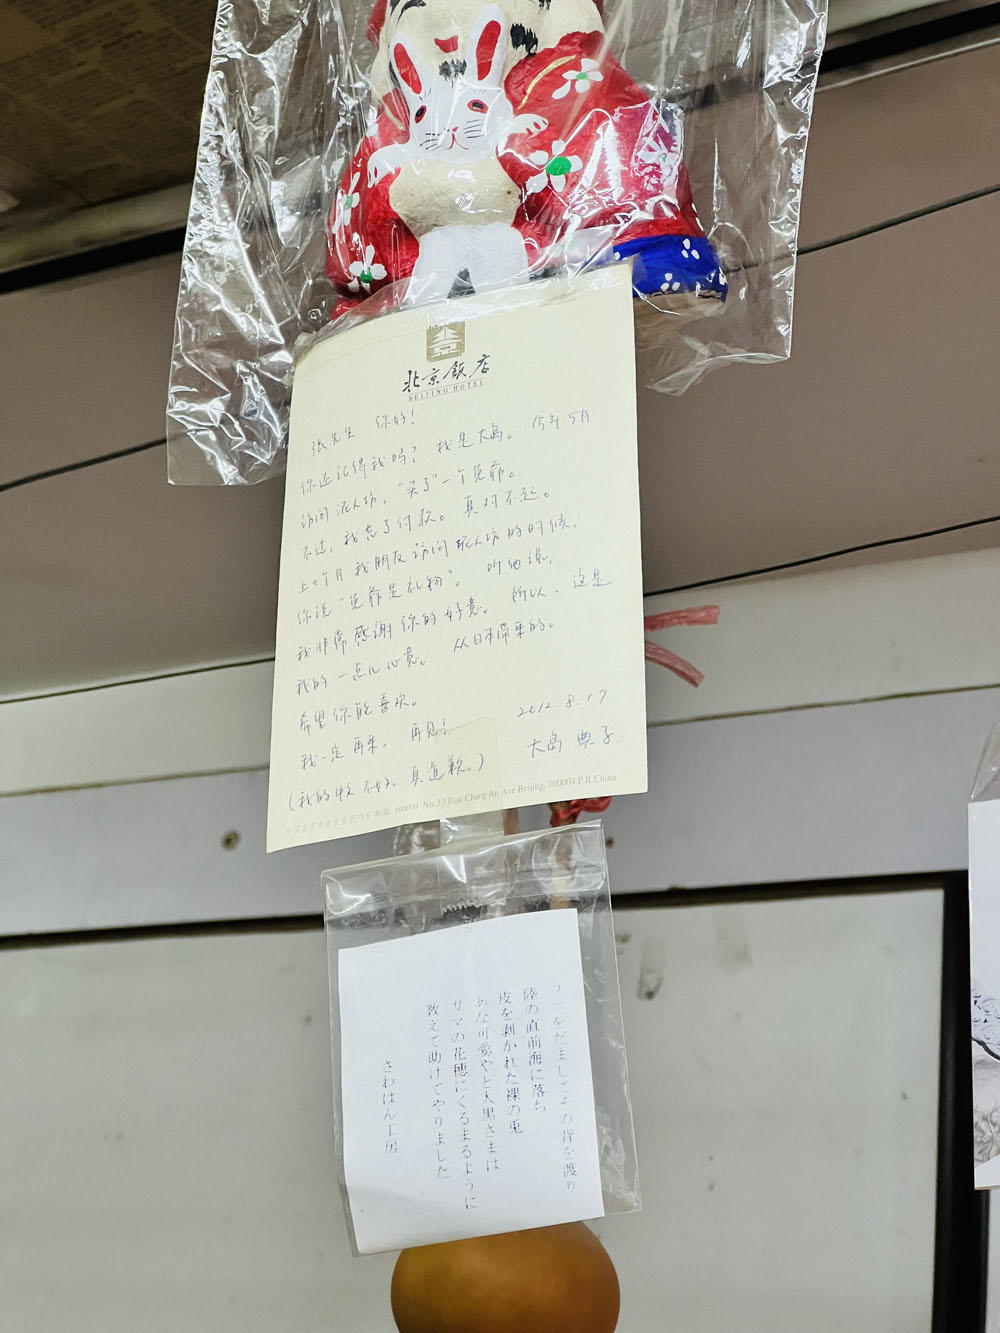 北京飯店
BEIJING HOTEL
张先生 你好！
你还记得我吗？ 我是大島。 今年5月
访问泥人坊，“买了”一个兔爷。
不过，我忘了付款。 真对不起。
上个月我朋友访问泥人坊的时候，
你说“兔爷是礼物”。 听他说，
我非常感谢你的好意。 所以，这是
我的一点儿心意。 从日本带来的。
希望你能喜欢。
我一定再来。 再见！
2012.8.17
大島 典子
(我的 不好。真道歉。)
中国北京市东长安街33号 邮编: 100004 No.33 East Chang An Ave Beijing, 100004 P.R.China
ワニをだましてその背を渡り
陸の直前海に落ち
皮を剥かれた裸の兎
あな可愛やと大黒さまは
ガマの花穂にくるまるように
教えて助けてやりました
さわはん工房